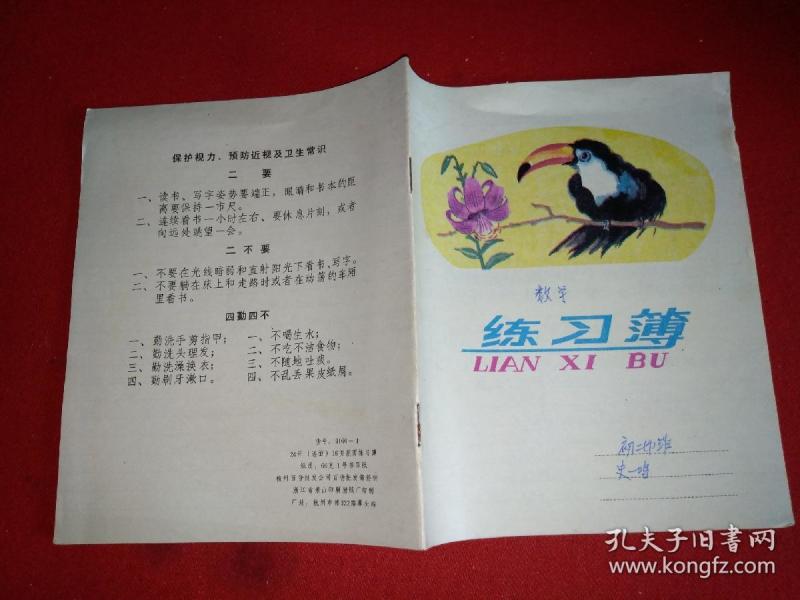 保护视力、预防近视及卫生常识
二 要
一、读书、写字姿势要端正，眼睛和书本的距
离要保持一市尺。
二、连续看书一小时左右，要休息片刻，或者
向远处眺望一会。
二 不 要
一、不要在光线暗弱和直射阳光下看书、写字。
二、不要躺在床上和走路时或者在动荡的车厢
里看书。
四勤四不
一、勤洗手剪指甲；
二、勤洗头理发；
三、勤洗澡换衣；
四、勤刷牙漱口。
一、不喝生水；
二、不吃不洁食物；
三、不随地吐痰。
四、不乱丢果皮纸屑。
货号：3106－1
杭州百货批发公司百货批发部经销
数学
练习簿
LIAN XI BU
孔夫子旧书网
www.kongfz.com